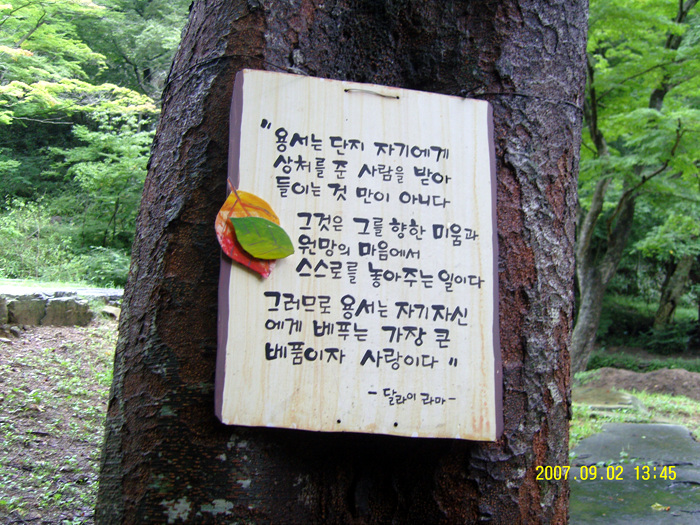 "용서는 단지 자기에게
상처를 준 사람을 받아
들이는 것 만이 아니다
그것은 그를 향한 미움과
원망의 마음에서
스스로를 놓아주는 일이다
그러므로 용서는 자기자신
에게 베푸는 가장 큰
베품이자 사랑이다"
- 달라이 라마 -
2007.09.02 13:45